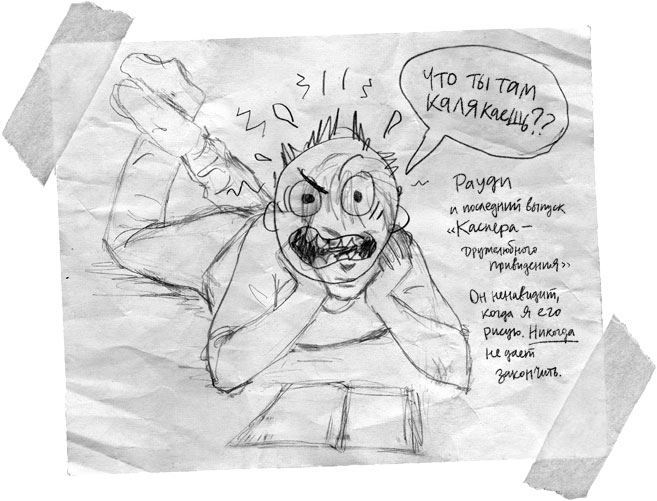 Что ты там
калякаешь??
Рауди
и последний выпуск
«Каспера –
дружелюбного
привидения»
Он ненавидит,
когда я его
рисую. Никогда
не дает
закончить.